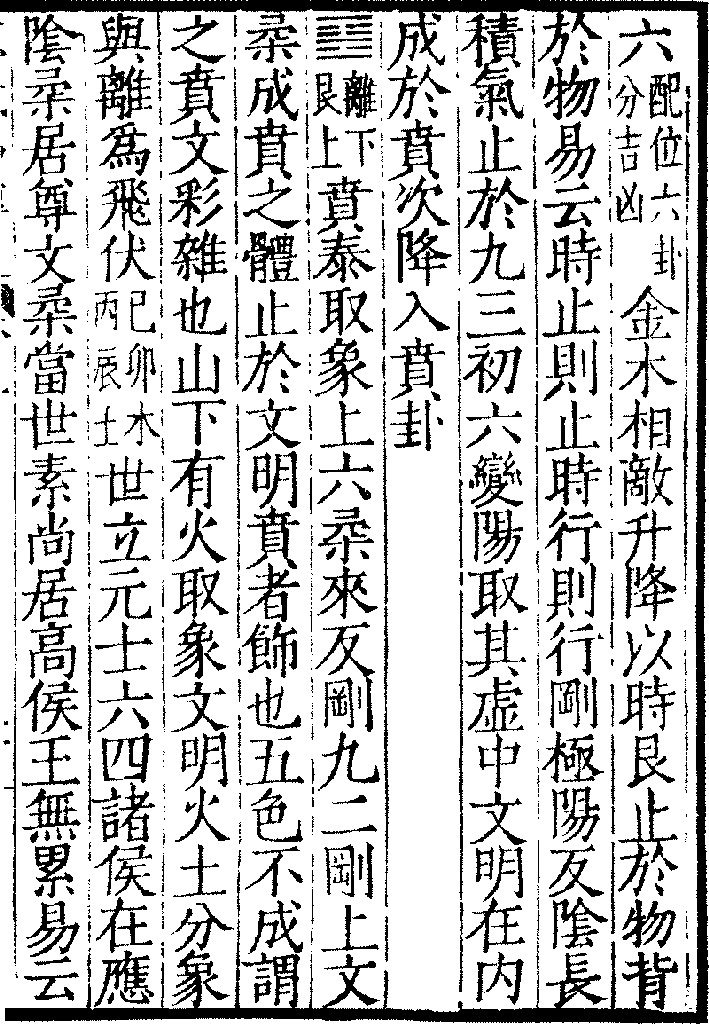 六配位六卦分吉凶金木相敵升降以時艮止於物背
於物易云時止則止時行則行剛極陽反陰長
積氣止於九三初六變陽取其虛中文明在内
成於賁次降入賁卦
䷕離下艮上賁泰取象上六柔來反剛九二剛上文
柔成賁之體止於文明賁者飾也五色不成謂
之賁文彩雜也山下有火取象文明火土分象
與離爲飛伏己卯木丙辰土世立元士六四諸侯在應
陰柔居尊文柔當世素尚居高侯王無累易云